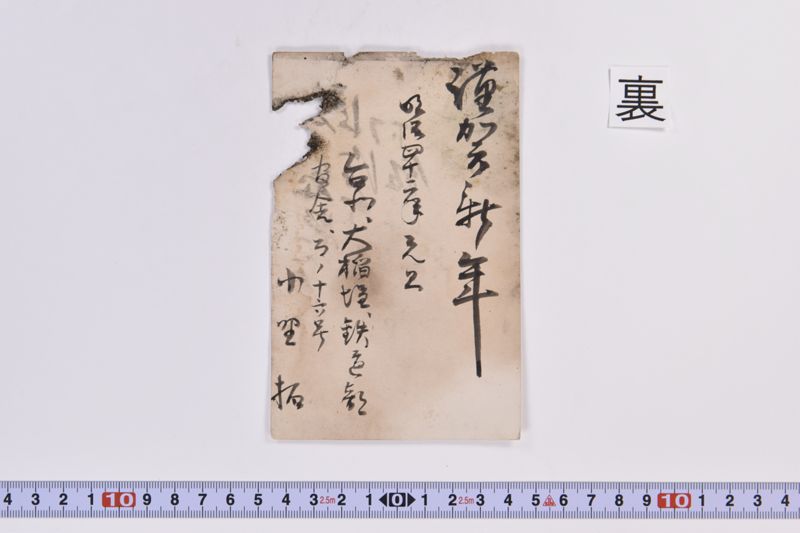 謹賀新年
明治四十二年元旦
台北、大稲埕、鉄道部
官舎、ろノ十六号
小野 拓
裏
4 3 2 1 10 9 8 7 6 5 4 3 2.5m 2 1 0 1 2 2.5m 3 4 5 6 7 8 9 10 1 2 3 4